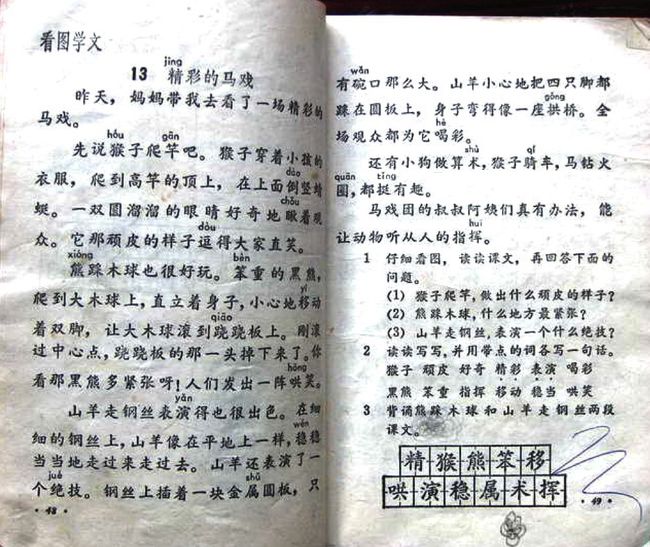 看图学文
jīng
13 精彩的马戏
昨天，妈妈带我去看了一场精彩的
马戏。
hóu gān
先说猴子爬竿吧。猴子穿着小孩的
dào
衣服，爬到高竿的顶上，在上面倒竖蜻
chǒu
蜓。一双圆溜溜的眼睛好奇地瞅着观
dòu
众。它那顽皮的样子逗得大家直笑。
xióng bèn
熊踩木球也很好玩。笨重的黑熊，
yí
爬到大木球上，直立着身子，小心地移动
qiāo
着双脚，让大木球滚到跷跷板上。刚滚
过中心点，跷跷板的那一头掉下来了。你
hōng
看那黑熊多紧张呀！人们发出一阵哄笑。
yǎn
山羊走钢丝表演得也很出色。在细
wěn
细的钢丝上，山羊像在平地上一样，稳稳
当当地走过来走过去。山羊还表演了一
jué shǔ
个绝技。钢丝上插着一块金属圆板，只
·48·
wǎn
有碗口那么大。山羊小心地把四只脚都
gǒng
踩在圆板上，身子弯得像一座拱桥。全
hè
场观众都为它喝彩。
shù qí
还有小狗做算术，猴子骑车，马钻火
quān tǐng
圈，都挺有趣。
马戏团的叔叔阿姨们真有办法，能
huī
让动物听从人的指挥。
1 仔细看图，读读课文，再回答下面的
问题。
(1) 猴子爬竿，做出什么顽皮的样子？
(2) 熊踩木球，什么地方最紧张？
(3) 山羊走钢丝，表演一个什么绝技？
2 读读写写，并用带点的词各写一句话。
猴子 顽皮 好奇 精彩 表演 喝彩
黑熊 笨重 指挥 移动 稳当 哄笑
3 背诵熊踩木球和山羊走钢丝两段
课文。
精猴熊笨移
哄演稳属术挥
·49·